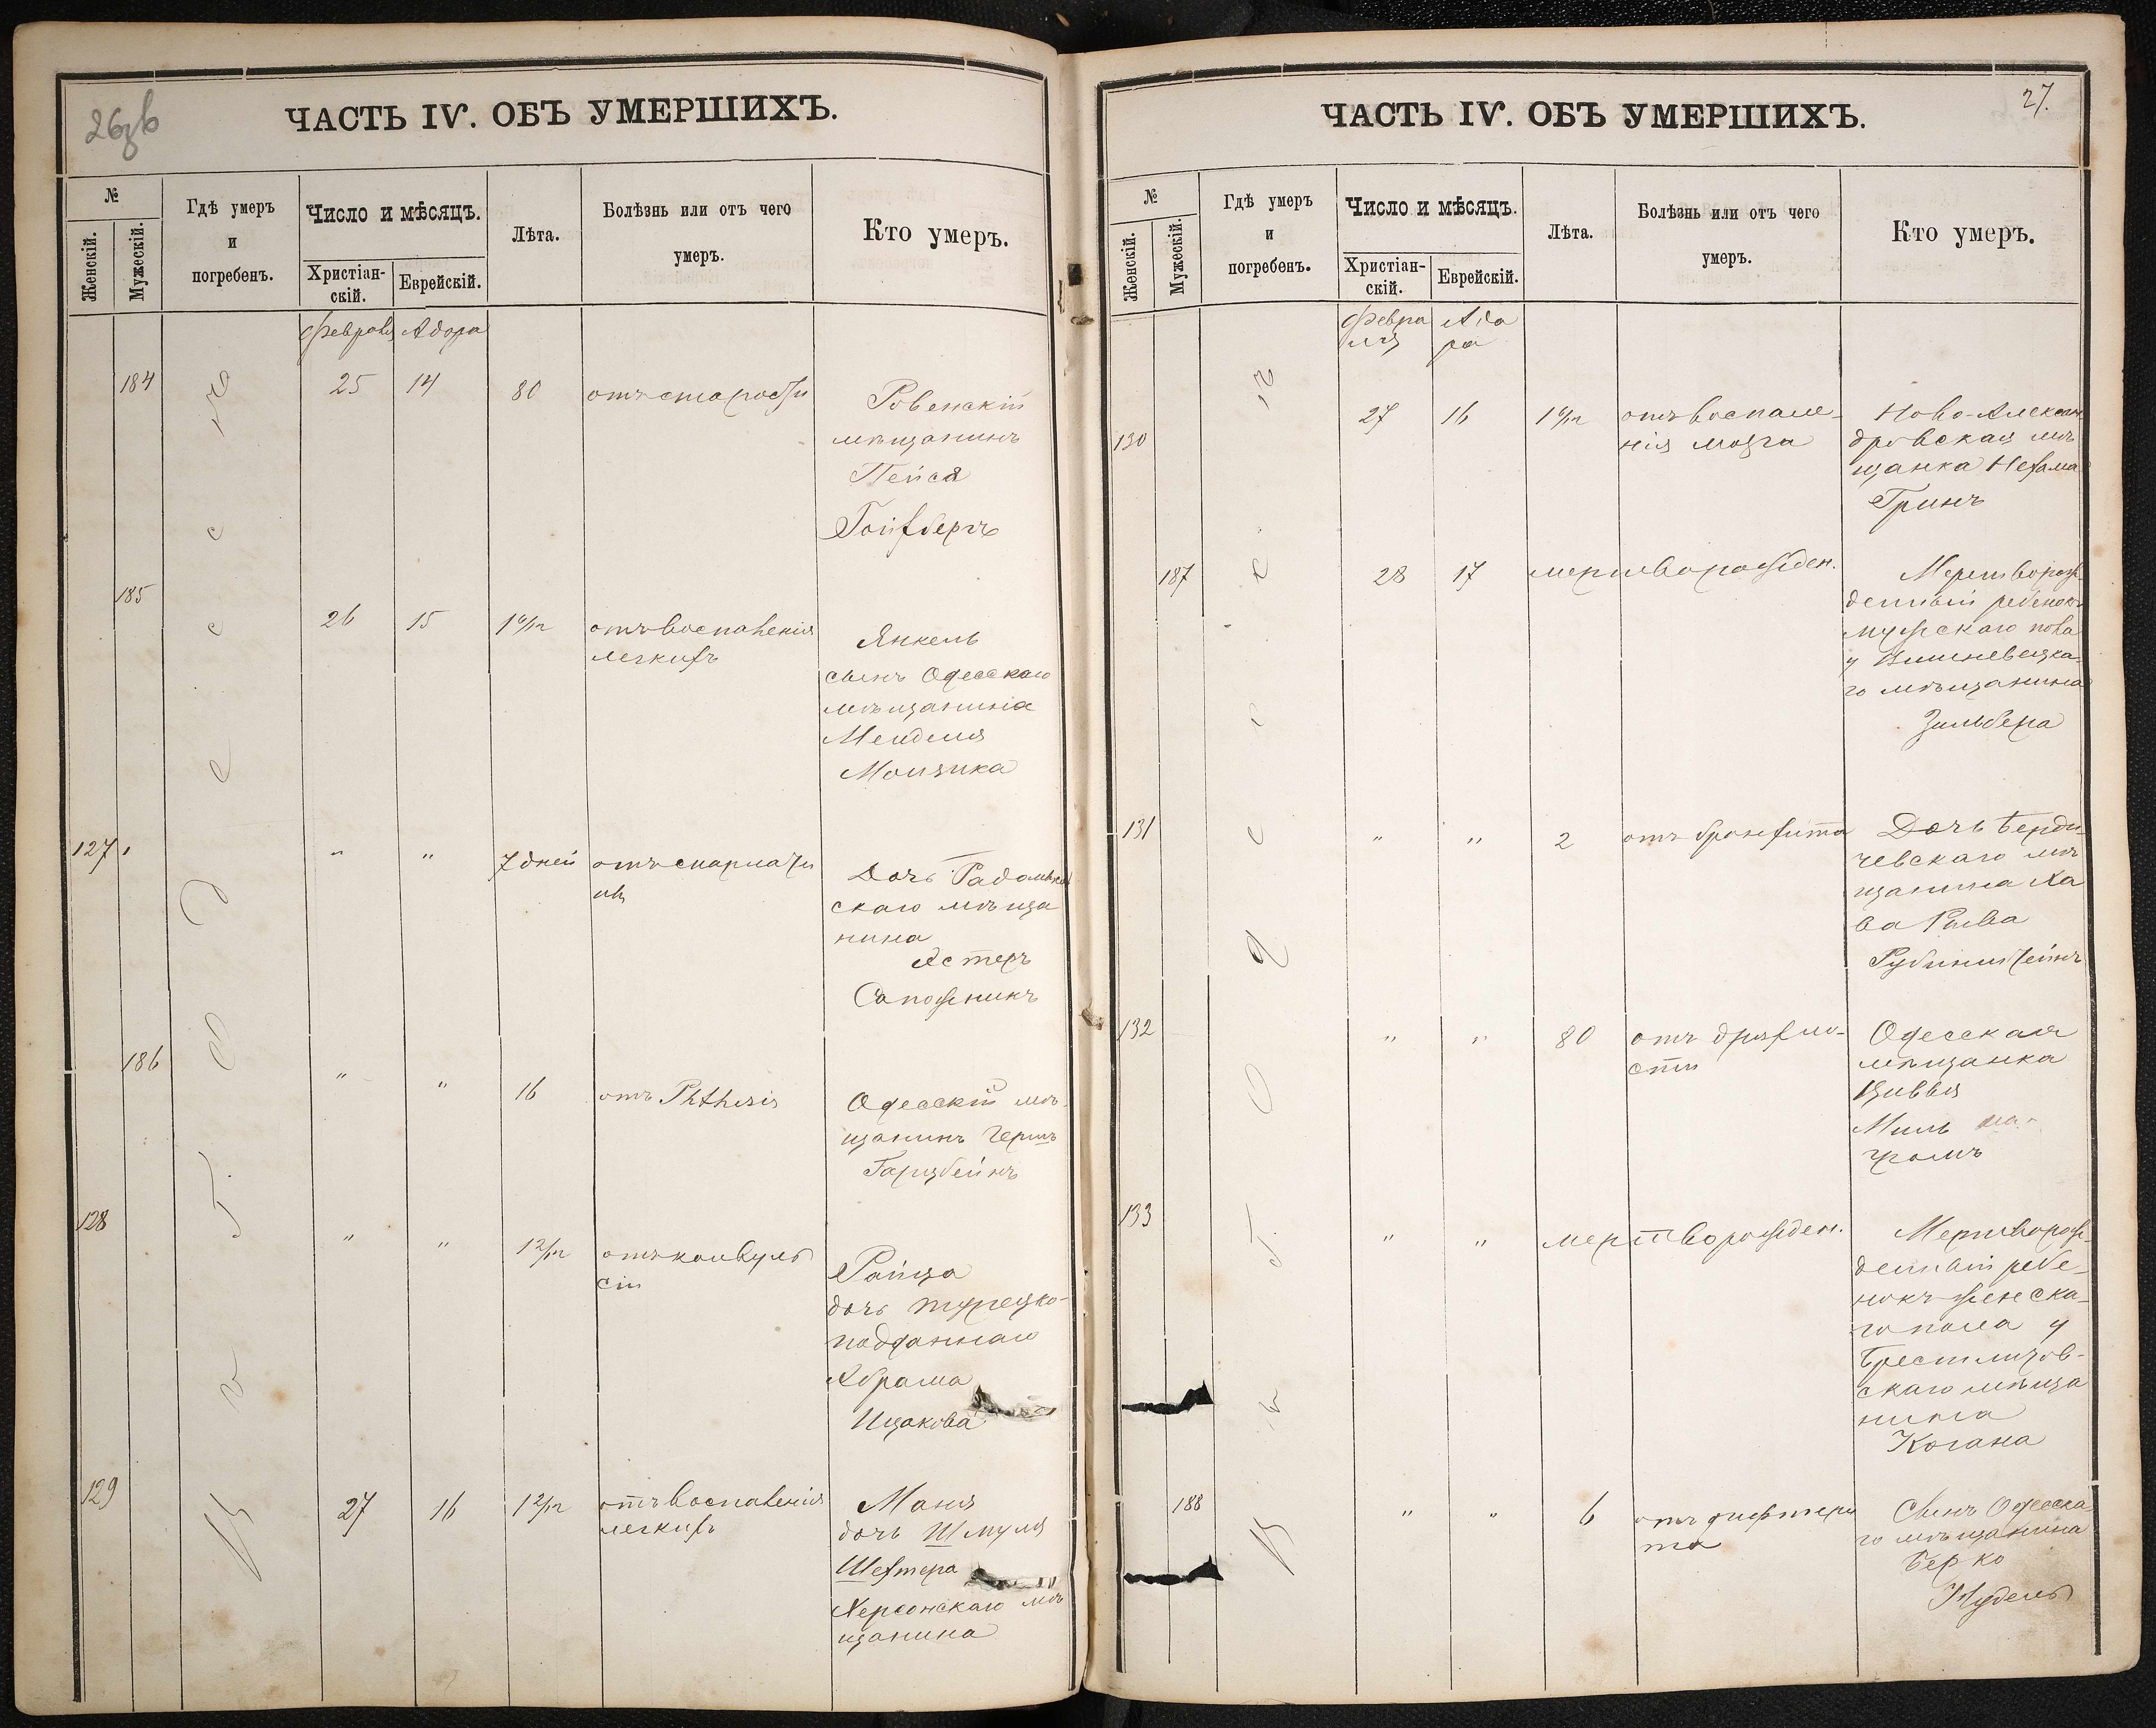 26
ЧАСТЬ IV. ОБЪ УМЕРШИХЪ.
№
Женскій.
Мужескій.
Гдѣ умеръ
и
погребенъ.
Число и мѣсяцъ.
Христіан-
скій.
Еврейскій.
Лѣта.
Болѣзнь или отъ чего
умеръ.
Кто умеръ.
Въ г. Одессѣ
Февраля Адара
184 25 14 80 отъ старости
Ровенскій
мѣщанинъ
Пейся
Гойхбергъ
185
26 15 1 6/12 отъ воспаленія
легкихъ
Янкель
сынъ Одесскаго
мѣщанина
Менделя
Моизика
127 " " 7 дней отъ
Дочь Радомысль
скаго мѣща
нина
Естеръ
Сапожникъ
186 " " 16 отъ Phthisis
Одесскій мѣ
щанинъ Гершъ
Гарцбейнъ
128
" " 1 2/12 отъ конвуль
сіи
Райза
дочь турецко-
подданнаго
Абрама
Ицакова
129 27 16 1 2/12 отъ воспаленія
легкихъ
Маня
дочь Шмуля
Шехтера
Херсонскаго мѣ
щанина
27.
ЧАСТЬ IV. ОБЪ УМЕРШИХЪ.
№
Женскій.
Мужескій.
Гдѣ умеръ
и
погребенъ.
Число и мѣсяцъ.
Христіан-
скій.
Еврейскій.
Лѣта.
Болѣзнь или отъ чего
умеръ.
Кто умеръ.
Въ г. Одессѣ
Февра Ада
ля ра
130 27 16 1 6/12 отъ воспале-
нія мозга
Ново-Алексан
дровская мѣ
щанка Нехама
Гринъ
187 28 17 мертворожден.
Мертворож
денный ребенокъ
мужскаго пола
у Вишневецка-
го мѣщанина
Зильбера
131 " " 2 отъ бронхита
Дочь Берди
чевскаго мѣ
щанина Ха
ва Ривва
Рубинштейнъ
132 " " 80 отъ дряхло-
сти
Одесская
мѣщанка
Цивья
Миль
громъ
133 " " мертворожден.
Мертворож-
денный ребе-
нокъ женска-
го пола у
Брестлитов-
скаго мѣща
нина
Когана
188 " " 6 отъ дифтери
та
Сынъ Одесска
го мѣщанина
Берко
Нудель